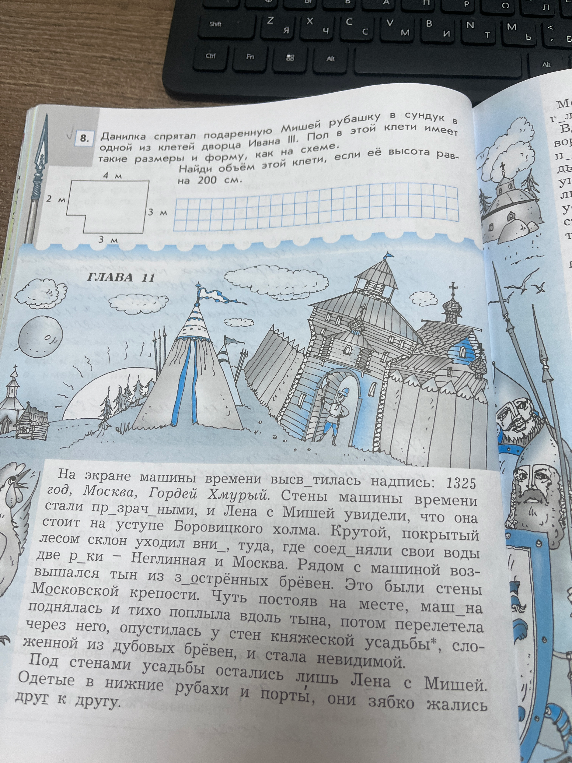 Shift
Z Я
X Ч
C С
V М
B И
N Т
M Ь
Ctrl
Fn
Alt
Alt
8. Данилка спрятал подаренную Мишей рубашку в сундук в
одной из клетей дворца Ивана III. Пол в этой клети имеет
такие размеры и форму, как на схеме.
Найди объём этой клети, если её высота рав-
на 200 см.
4 м
2 м
3 м
3 м
ГЛАВА 11
На экране машины времени высв_тилась надпись: 1325
год, Москва, Гордей Хмурый. Стены машины времени
стали пр_зрач_ными, и Лена с Мишей увидели, что она
стоит на уступе Боровицкого холма. Крутой, покрытый
лесом склон уходил вни_, туда, где соед_няли свои воды
две р_ки – Неглинная и Москва. Рядом с машиной воз-
вышался тын из з_острённых брёвен. Это были стены
Московской крепости. Чуть постояв на месте, маш_на
поднялась и тихо поплыла вдоль тына, потом перелетела
через него, опустилась у стен княжеской усадьбы*, сло-
женной из дубовых брёвен, и стала невидимой.
Под стенами усадьбы остались лишь Лена с Мишей.
Одетые в нижние рубахи и порты́, они зябко жались
друг к другу.